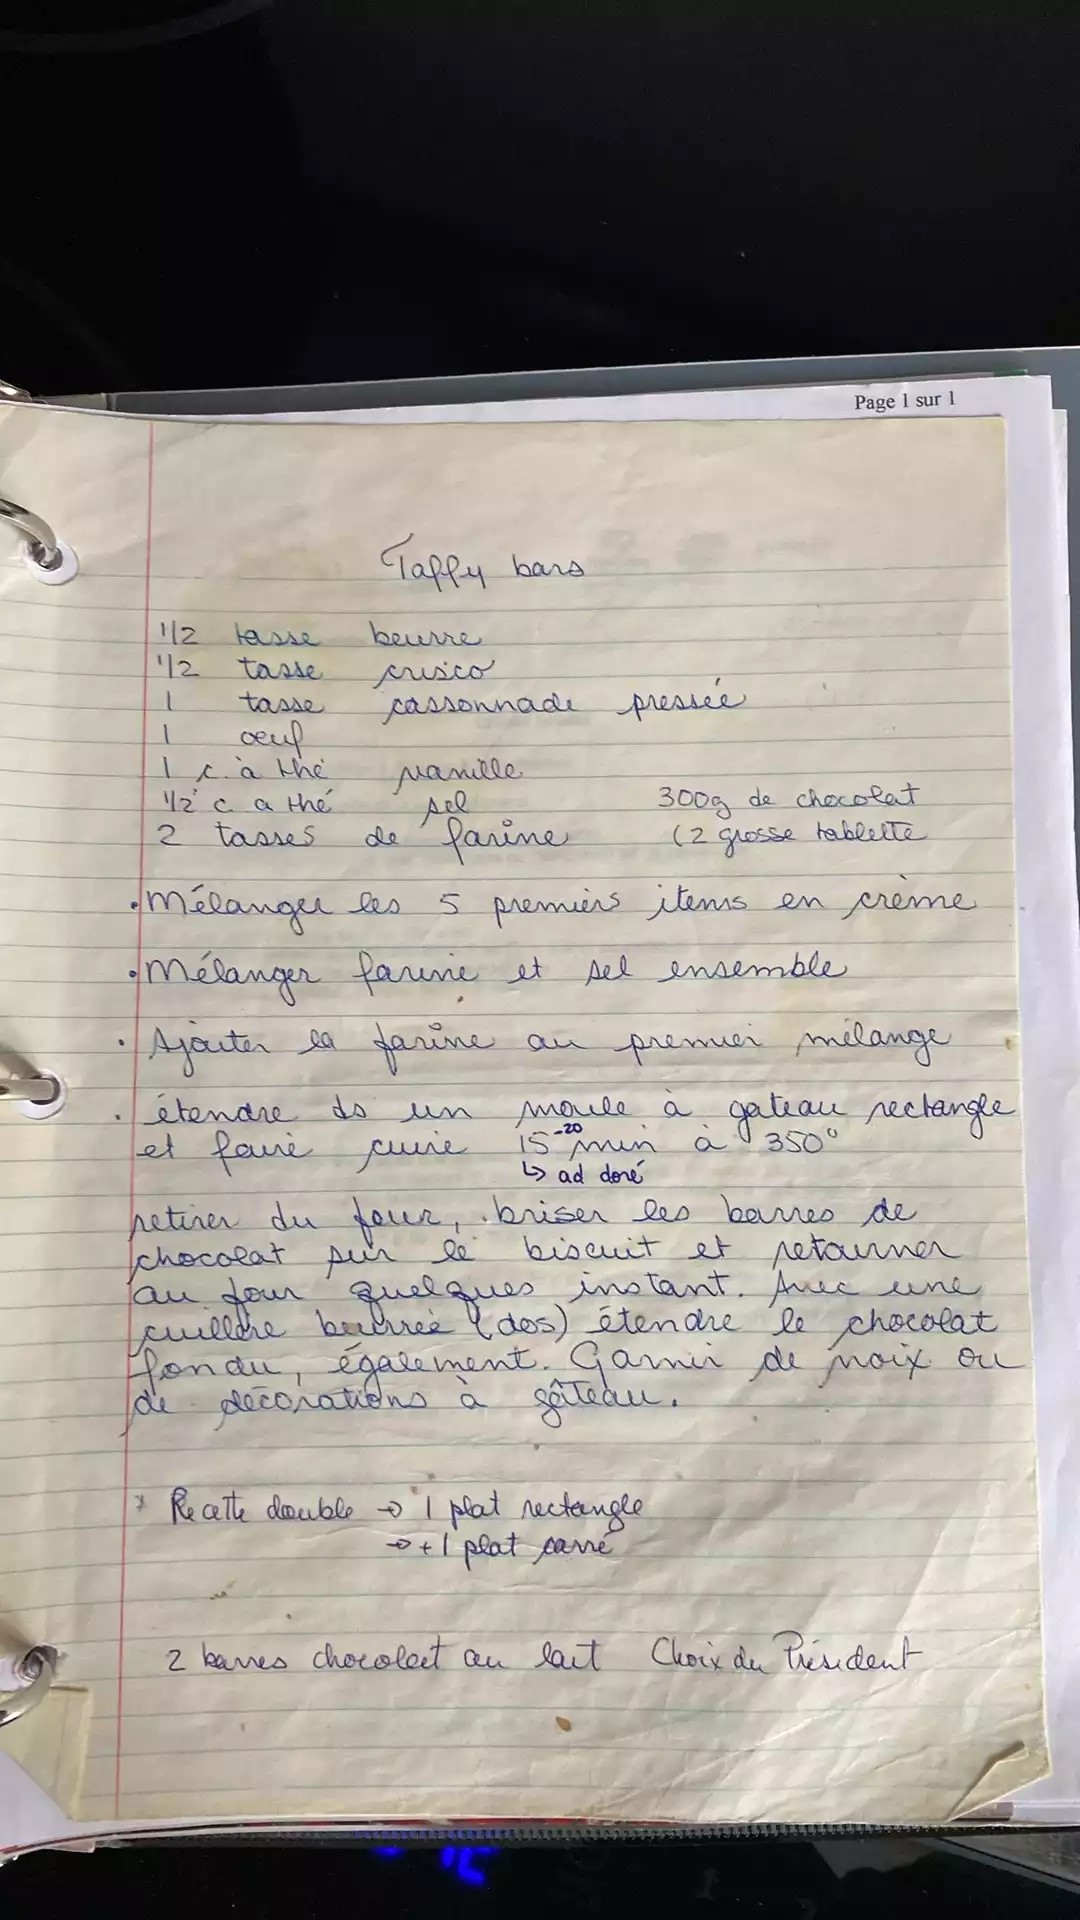 Page 1 sur 1
Taffy bars
1/2 tasse beurre
1/2 tasse crisco
1 tasse cassonnade pressée
1 oeuf
1 c. à thé vanille
1/2 c. a thé sel 300g de chocolat
2 tasses de farine (2 grosse tablette
• Mélanger les 5 premiers items en crème
• Mélanger farine et sel ensemble
• Ajouter la farine au premier mélange
• étendre ds un moule à gateau rectangle
et faire cuire 15-20 min à 350°
↳ ad doré
retirer du four, briser les barres de
chocolat sur le biscuit et retourner
au four quelques instant. Avec une
cuillère beurrée (dos) étendre le chocolat
fondu, également. Garnir de noix ou
de décorations à gâteau.
* Recette double → 1 plat rectangle
→ + 1 plat carré
2 barres chocolat au lait Choix du Président